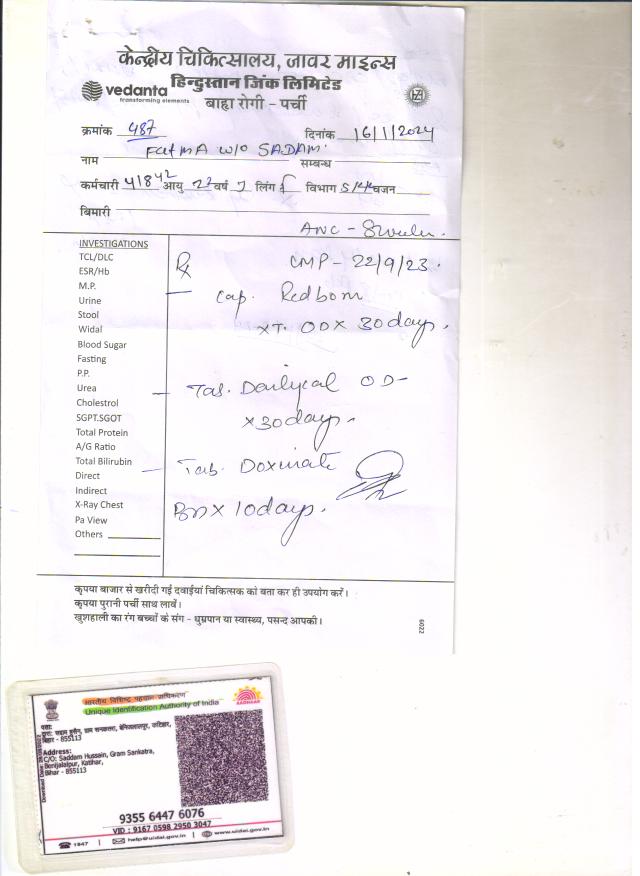 केन्द्रीय चिकित्सालय, जावर माइन्स
हिन्दुस्तान जिंक लिमिटेड
vedanta
transforming elements
बाह्य रोगी - पर्ची
क्रमांक 487 दिनांक 16/1/2024
नाम FatMA W/O SADAM. सम्बन्ध
कर्मचारी 41842 आयु 22 वर्ष लिंग F विभाग वजन
बिमारी
ANC -
INVESTIGATIONS
TCL/DLC
ESR/Hb
M.P.
Urine
Stool
Widal
Blood Sugar
Fasting
P.P.
Urea
Cholestrol
SGPT.SGOT
Total Protein
A/G Ratio
Total Bilirubin
Direct
Indirect
X-Ray Chest
Pa View
Others
Rx
LMP - 22/9/23.
- Cap. Redbom
XT. OD X 30 days.
- Tab. Dailycal OD-
X 30 days.
- Tab. Doxinate
Bn X 10 days.
कृपया बाजार से खरीदी गई दवाईयां चिकित्सक को बता कर ही उपयोग करें।
कृपया पुरानी पर्ची साथ लावें।
खुशहाली का रंग बच्चों के संग - धुम्रपान या स्वास्थ्य, पसन्द आपकी।
6022
भारतीय विशिष्ट पहचान प्राधिकरण
Unique Identification Authority of India
AADHAAR
पता:
बिहार - 855113
Address:
C/O: Saddam Hussain, Gram Sankatra,
Benijalalpur, Katihar,
Bihar - 855113
9355 6447 6076
VID : 9167 0598 2950 3047
1947 | help@uidai.gov.in | www.uidai.gov.in